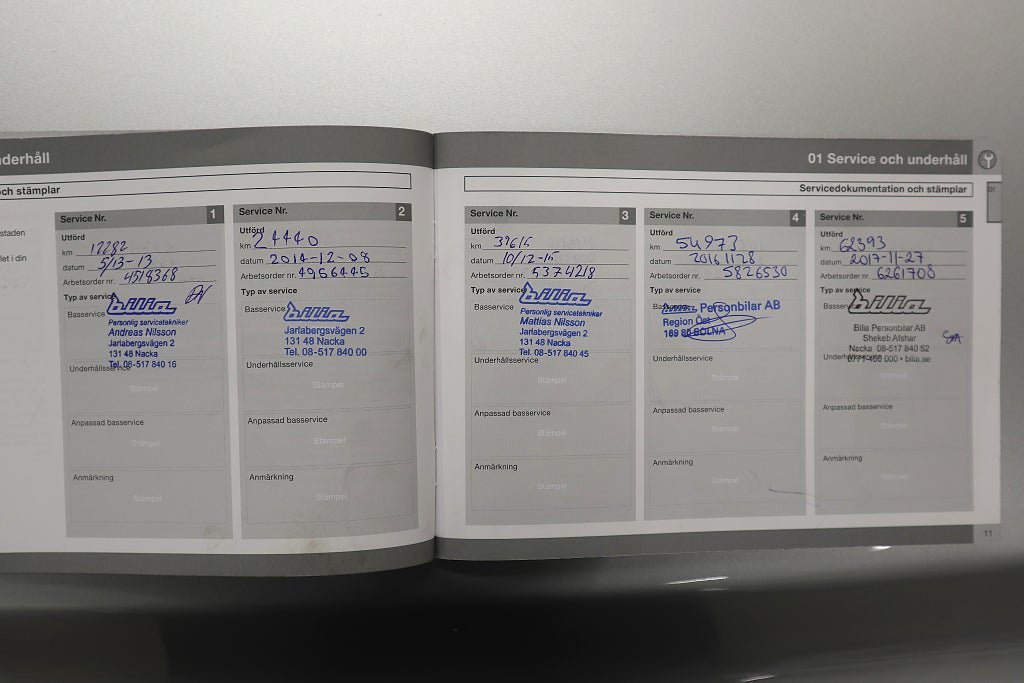 nderhåll
och stämplar
staden
let i din
Service Nr. 1
Utförd
km 12282
datum 5/13-13
Arbetsorder nr. 4518368
Typ av service
Basservice
bilia
Personlig servicetekniker
Andreas Nilsson
Jarlabergsvägen 2
131 48 Nacka
Tel. 08-517 840 16
Underhållsservice
Stämpel
Anpassad basservice
Stämpel
Anmärkning
Stämpel
Service Nr. 2
Utförd
km 24440
datum 2014-12-08
Arbetsorder nr. 4956445
Typ av service
Basservice
bilia
Jarlabergsvägen 2
131 48 Nacka
Tel. 08-517 840 00
Underhållsservice
Stämpel
Anpassad basservice
Stämpel
Anmärkning
Stämpel
01 Service och underhåll
Servicedokumentation och stämplar
01
Service Nr. 3
Utförd
km 39615
datum 10/12-15
Arbetsorder nr. 5374218
Typ av service
Basservice
bilia
Personlig servicetekniker
Mattias Nilsson
Jarlabergsvägen 2
131 48 Nacka
Tel. 08-517 840 45
Underhållsservice
Stämpel
Anpassad basservice
Stämpel
Anmärkning
Stämpel
Service Nr. 4
Utförd
km 54973
datum 20161128
Arbetsorder nr. 5826530
Typ av service
bilia Personbilar AB
Region Öst
169 86 SOLNA
Underhållsservice
Stämpel
Anpassad basservice
Stämpel
Anmärkning
Stämpel
Service Nr. 5
Utförd
km 62393
datum 2017-11-27
Arbetsorder nr. 6261708
Typ av service
Basservice
bilia
Bilia Personbilar AB
Shekeb Afshar
Nacka 08-517 840 52
0771-400 000 • bilia.se
Underhållsservice
Stämpel
Anpassad basservice
Stämpel
Anmärkning
Stämpel
11